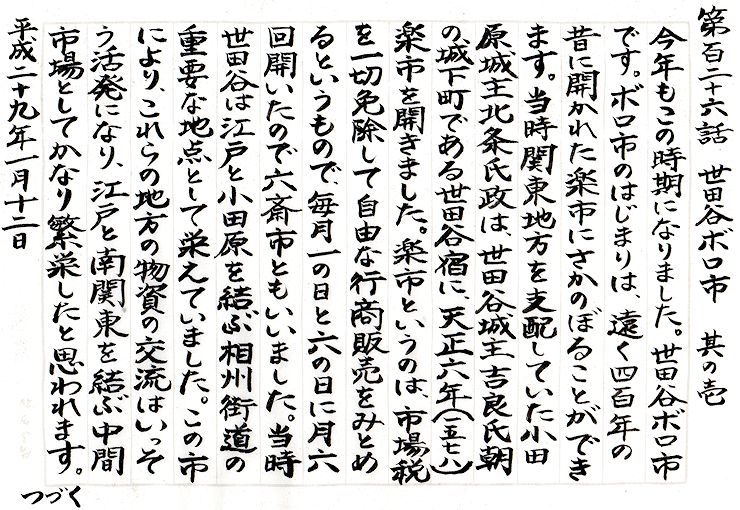 第百二十六話 世田谷ボロ市 其の壱
今年もこの時期になりました。世田谷ボロ市
です。ボロ市のはじまりは、遠く四百年の
昔に開かれた楽市にさかのぼることができ
ます。当時関東地方を支配していた小田
原城主北条氏政は、世田谷城主吉良氏朝
の城下町である世田谷宿に、天正六年(一五七八)
楽市を開きました。楽市というのは、市場税
を一切免除して自由な行商販売をみとめ
るというもので、毎月一の日と六の日に月六
回開いたので六斎市ともいいました。当時
世田谷は江戸と小田原を結ぶ相州街道の
重要な地点として栄えていました。この市
により、これらの地方の物資の交流はいっそ
う活発になり、江戸と南関東を結ぶ中間
市場としてかなり繁栄したと思われます。
つづく
平成二十九年一月十二日